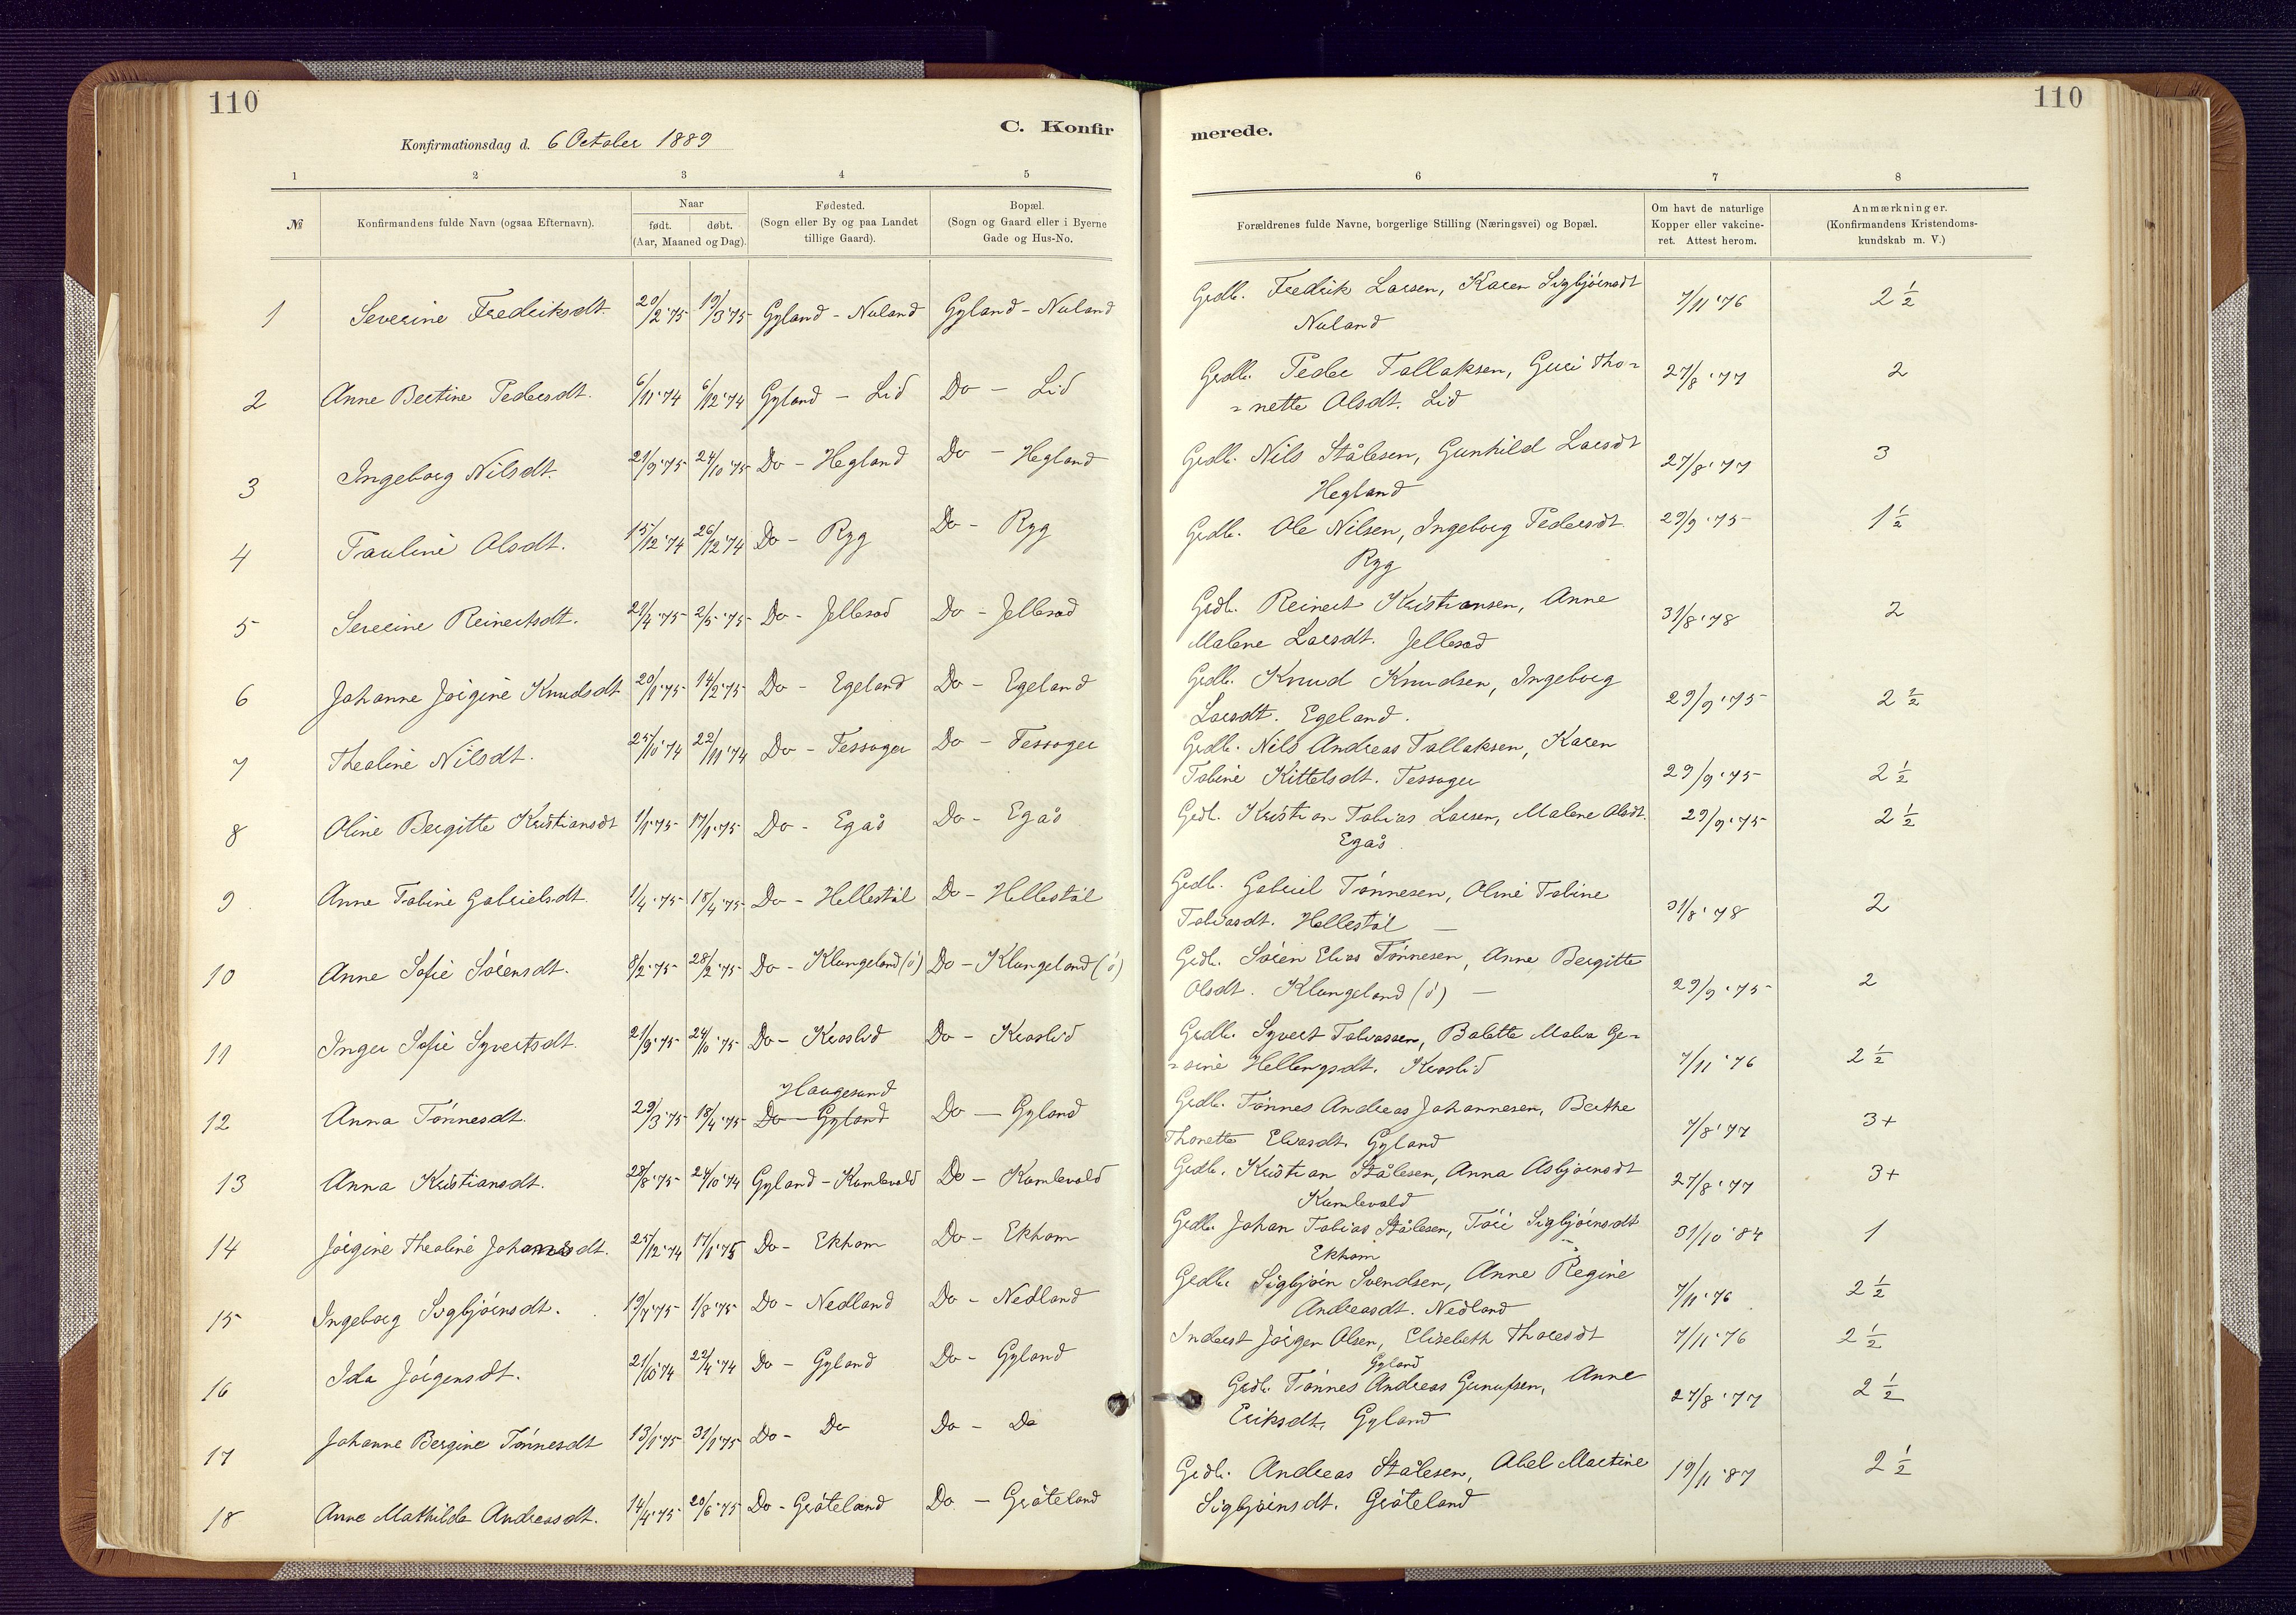 110
C. Konfir
merede.
110
Konfirmationsdag d. 6 October 1889
1 2 3 4 5 6 7 8
№ Konfirmandens fulde Navn (ogsaa Efternavn).
Naar
født. døbt.
(Aar, Maaned og Dag).
Fødested.
(Sogn eller By og paa Landet
tillige Gaard).
Bopæl.
(Sogn og Gaard eller i Byerne
Gade og Hus-No.
Forældrenes fulde Navne, borgerlige Stilling (Næringsvei) og Bopæl.
Om havt de naturlige
Kopper eller vakcine-
ret. Attest herom.
Anmærkninger.
(Konfirmandens Kristendoms-
kundskab m. V.)
1 Severine Fredriksdt. 20/2 '75 19/3 '75 Gyland - Nuland Gyland - Nuland Grdb. Fredrik Larsen, Karen Sigbjørnsdt 7/11 '76 2 1/2
Nuland
2 Anne Bertine Pedersdt. 6/11 '74 6/12 '74 Gyland - Lid Do - Lid Grdb. Peder Tallaksen, Guri Tho= 27/8 '77 2
= nette Olsdt. Lid
3 Ingeborg Nilsdt. 21/9 '75 24/10 '75 Do - Hegland Do - Hegland Grdb. Nils Stålesen, Gunhild Larsdt 27/8 '77 3
Hegland
4 Pauline Olsdt. 15/12 '74 26/12 '74 Do - Ryg Do - Ryg Grdb. Ole Nilsen, Ingeborg Pedersdt 29/9 '75 1 1/2
Ryg
5 Severine Reinertsdt. 21/4 '75 2/5 '75 Do - Jellesad Do - Jellesad Grdb. Reinert Kristiansen, Anne 31/8 '78 2
Malene Larsdt. Jellesad
6 Johanne Jørgine Knudsdt 20/1 '75 14/2 '75 Do - Egeland Do - Egeland Grdb. Knud Knudsen, Ingeborg 29/9 '75 2 1/2
Larsdt. Egeland.
7 Thealine Nilsdt. 25/10 '74 22/11 '74 Do - Tessager Do - Tessager Grdb. Nils Andreas Tallaksen, Karen
Tobine Kittelsdt. Tessager 29/9 '75 2 1/2
8 Oline Bergitte Kristiansdt 1/1 '75 17/1 '75 Do - Egås Do - Egås Grdb. Kristian Tobias Larsen, Malene Olsdt. 29/9 '75 2 1/2
Egås.
9 Anne Tobine Gabrielsdt. 1/4 '75 18/4 '75 Do - Hellestøl Do - Hellestøl Grdb. Gabriel Tønnesen, Oline Tobine 31/8 '78 2
Tobiasdt. Hellestøl —
10 Anne Sofie Sørensdt. 8/2 '75 28/2 '75 Do - Klungeland (ø) Do - Klungeland (ø) Grdb. Søren Elias Tønnesen, Anne Bergitte
Olsdt. Klungeland (ø) — 29/9 '75 2
11 Inger Sofie Syvertsdt. 21/9 '75 24/10 '75 Do - Kvaslid Do - Kvaslid Grdb. Syvert Tobiassen, Balette Malia Ge=
= sine Hellengsdt. Kvaslid 7/11 '76 2 1/2
Haugesund
12 Anna Tønnesdt. 29/3 '75 18/4 '75 Do - Gyland Do - Gyland Grdb. Tønnes Andreas Johannesen, Berthe
Thonette Eliasdt. Gyland 7/8 '77 3+
13 Anna Kristiansdt. 28/8 '75 24/10 '74 Gyland - Kumlevold Do - Kumlevold Grdb. Kristian Stålesen, Anna Asbjørnsdt 27/8 '77 3+
Kumlevold
14 Jørgine Thealine Johannesdt. 25/12 '74 17/1 '75 Do - Ekhom Do - Ekhom Grdb. Johan Tobias Stålesen, Tóri Sigbjørnsdt 31/10 '84 1
Ekhom
15 Ingeborg Sigbjørnsdt. 19/7 '75 1/8 '75 Do - Nedland Do - Nedland Grdb. Sigbjørn Svendsen, Anne Regine
Andreasdt. Nedland 7/11 '76 2 1/2
16 Ida Jørgensdt. 21/10 '74 22/4 '74 Do - Gyland Do - Gyland Inderst Jørgen Olsen, Elisebeth Thoresdt 7/11 '76 2 1/2
Gyland
17 Johanne Bergine Tønnesdt 13/1 '75 31/1 '75 Do - Do Do - Do Grdb. Tønnes Andreas Gunufsen, Anne 27/8 '77 2 1/2
Eriksdt. Gyland
18 Anne Mathilde Andreasdt. 14/4 '75 20/6 '75 Do - Grøteland Do - Grøteland Grdb. Andreas Stålesen, Abel Martine 19/11 '87 2 1/2
Sigbjørnsdt. Grøteland